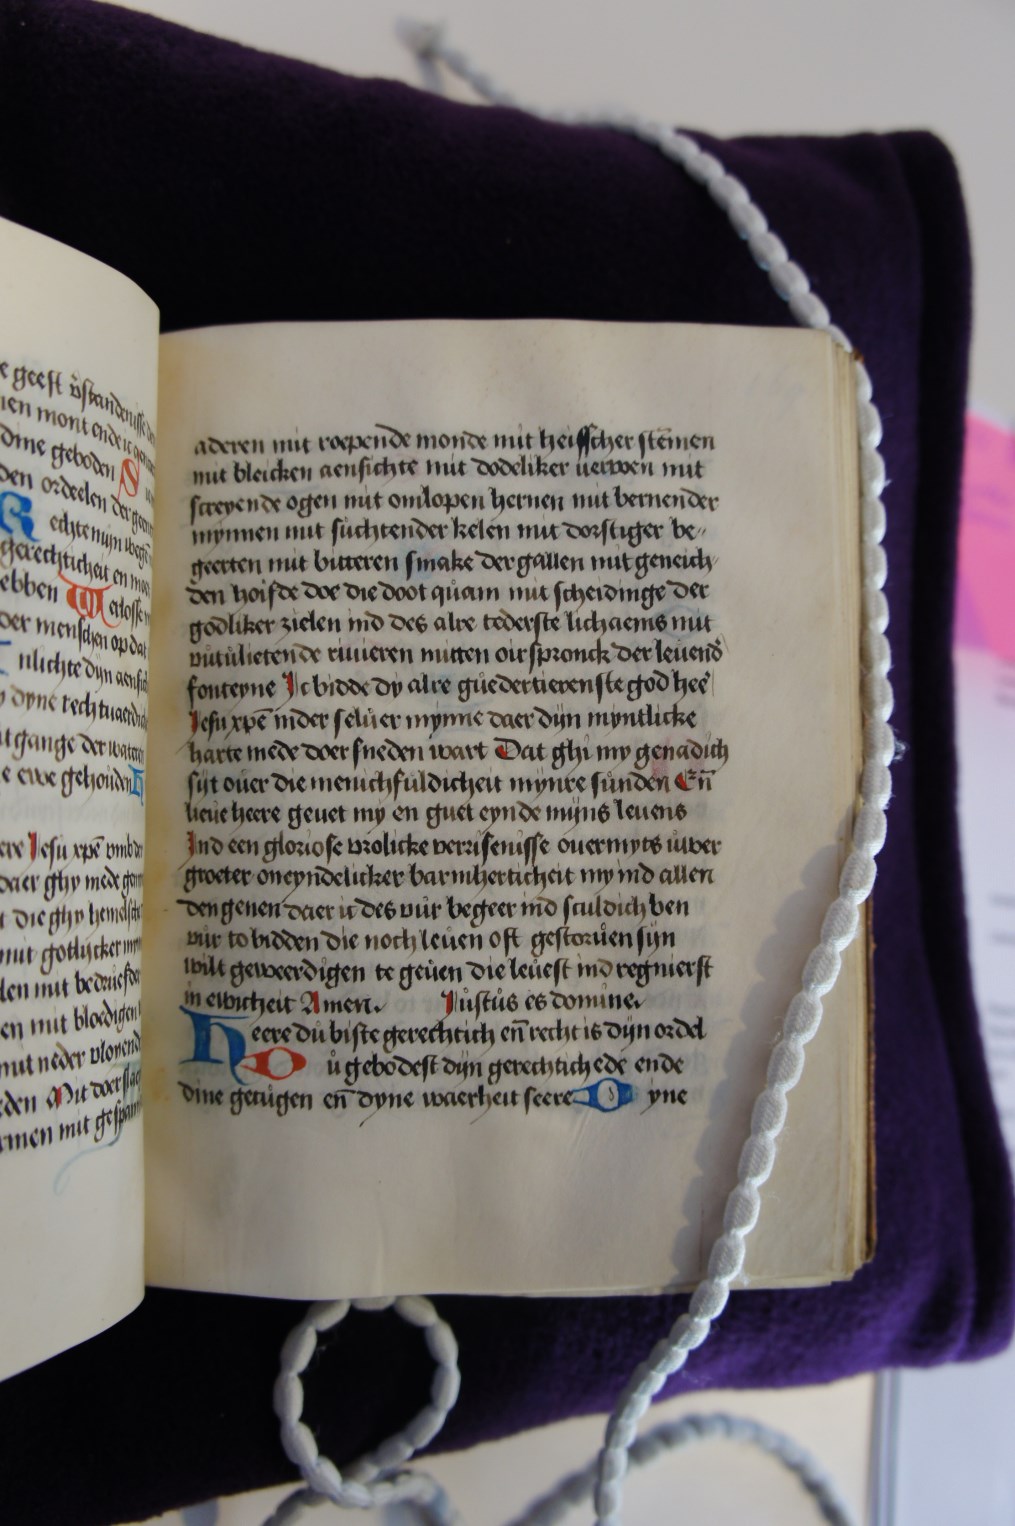 e geest v̄standenisse
ien mont ende ic
dine geboden S
den ordeelen der
R echte mijn wegē
gerechticheit en
ebben V erlosse
der menschen op dat
nlichte dijn aensi
dyne rechtuaerdic
gange der wateren
e ewe gehouden
ere Jesu xpē
daer ghy mede
die ghy hemelsche
mit gotlijcker
len mit bedruefder
en mit bloedigen
mit neder vloyend
den Mit doer
rmen mit gespan
aderen mit roepende monde mit heisscher stēmen
mit bleicken aensichte mit dodeliker uerwen mit
screyende ogen mit omlopen hernen mit bernender
mynnen mit suchtender kelen mit dorstiger be-
geerten mit bitteren smake der gallen mit geneich-
den hoifde doe die doot quam mit scheidinge der
godliker zielen ind des alre tederste lichaems mit
vutulietende riuieren mitten oirspronck der leuend
fonteyne Ic bidde dy alre guedertierenste god heē
Jesu xpē inder seluer mynne daer dijn myntlicke
harte mede doersneden wart Dat ghi my genadich
sijt ouer die menichfuldicheit mynre sunden En̄
lieue heere geuet my en guet eynde mijns leuens
Ind een gloriose vrolicke verrisenisse ouermyts uwer
groeter oneyndelicker barmherticheit my ind allen
den genen daer ic des vur begeer ind sculdich ben
vur to bidden die noch leuen oft gestoruen sijn
wilt geweerdigen te geuen die leuest ind regnierst
in ewicheit Amen. Justus es domine.
Heere du biste gerechtich en̄ recht is dijn ordel
D u gebodest dijn gerechtichede ende
dine getugen en̄ dyne waerheit seere D yne